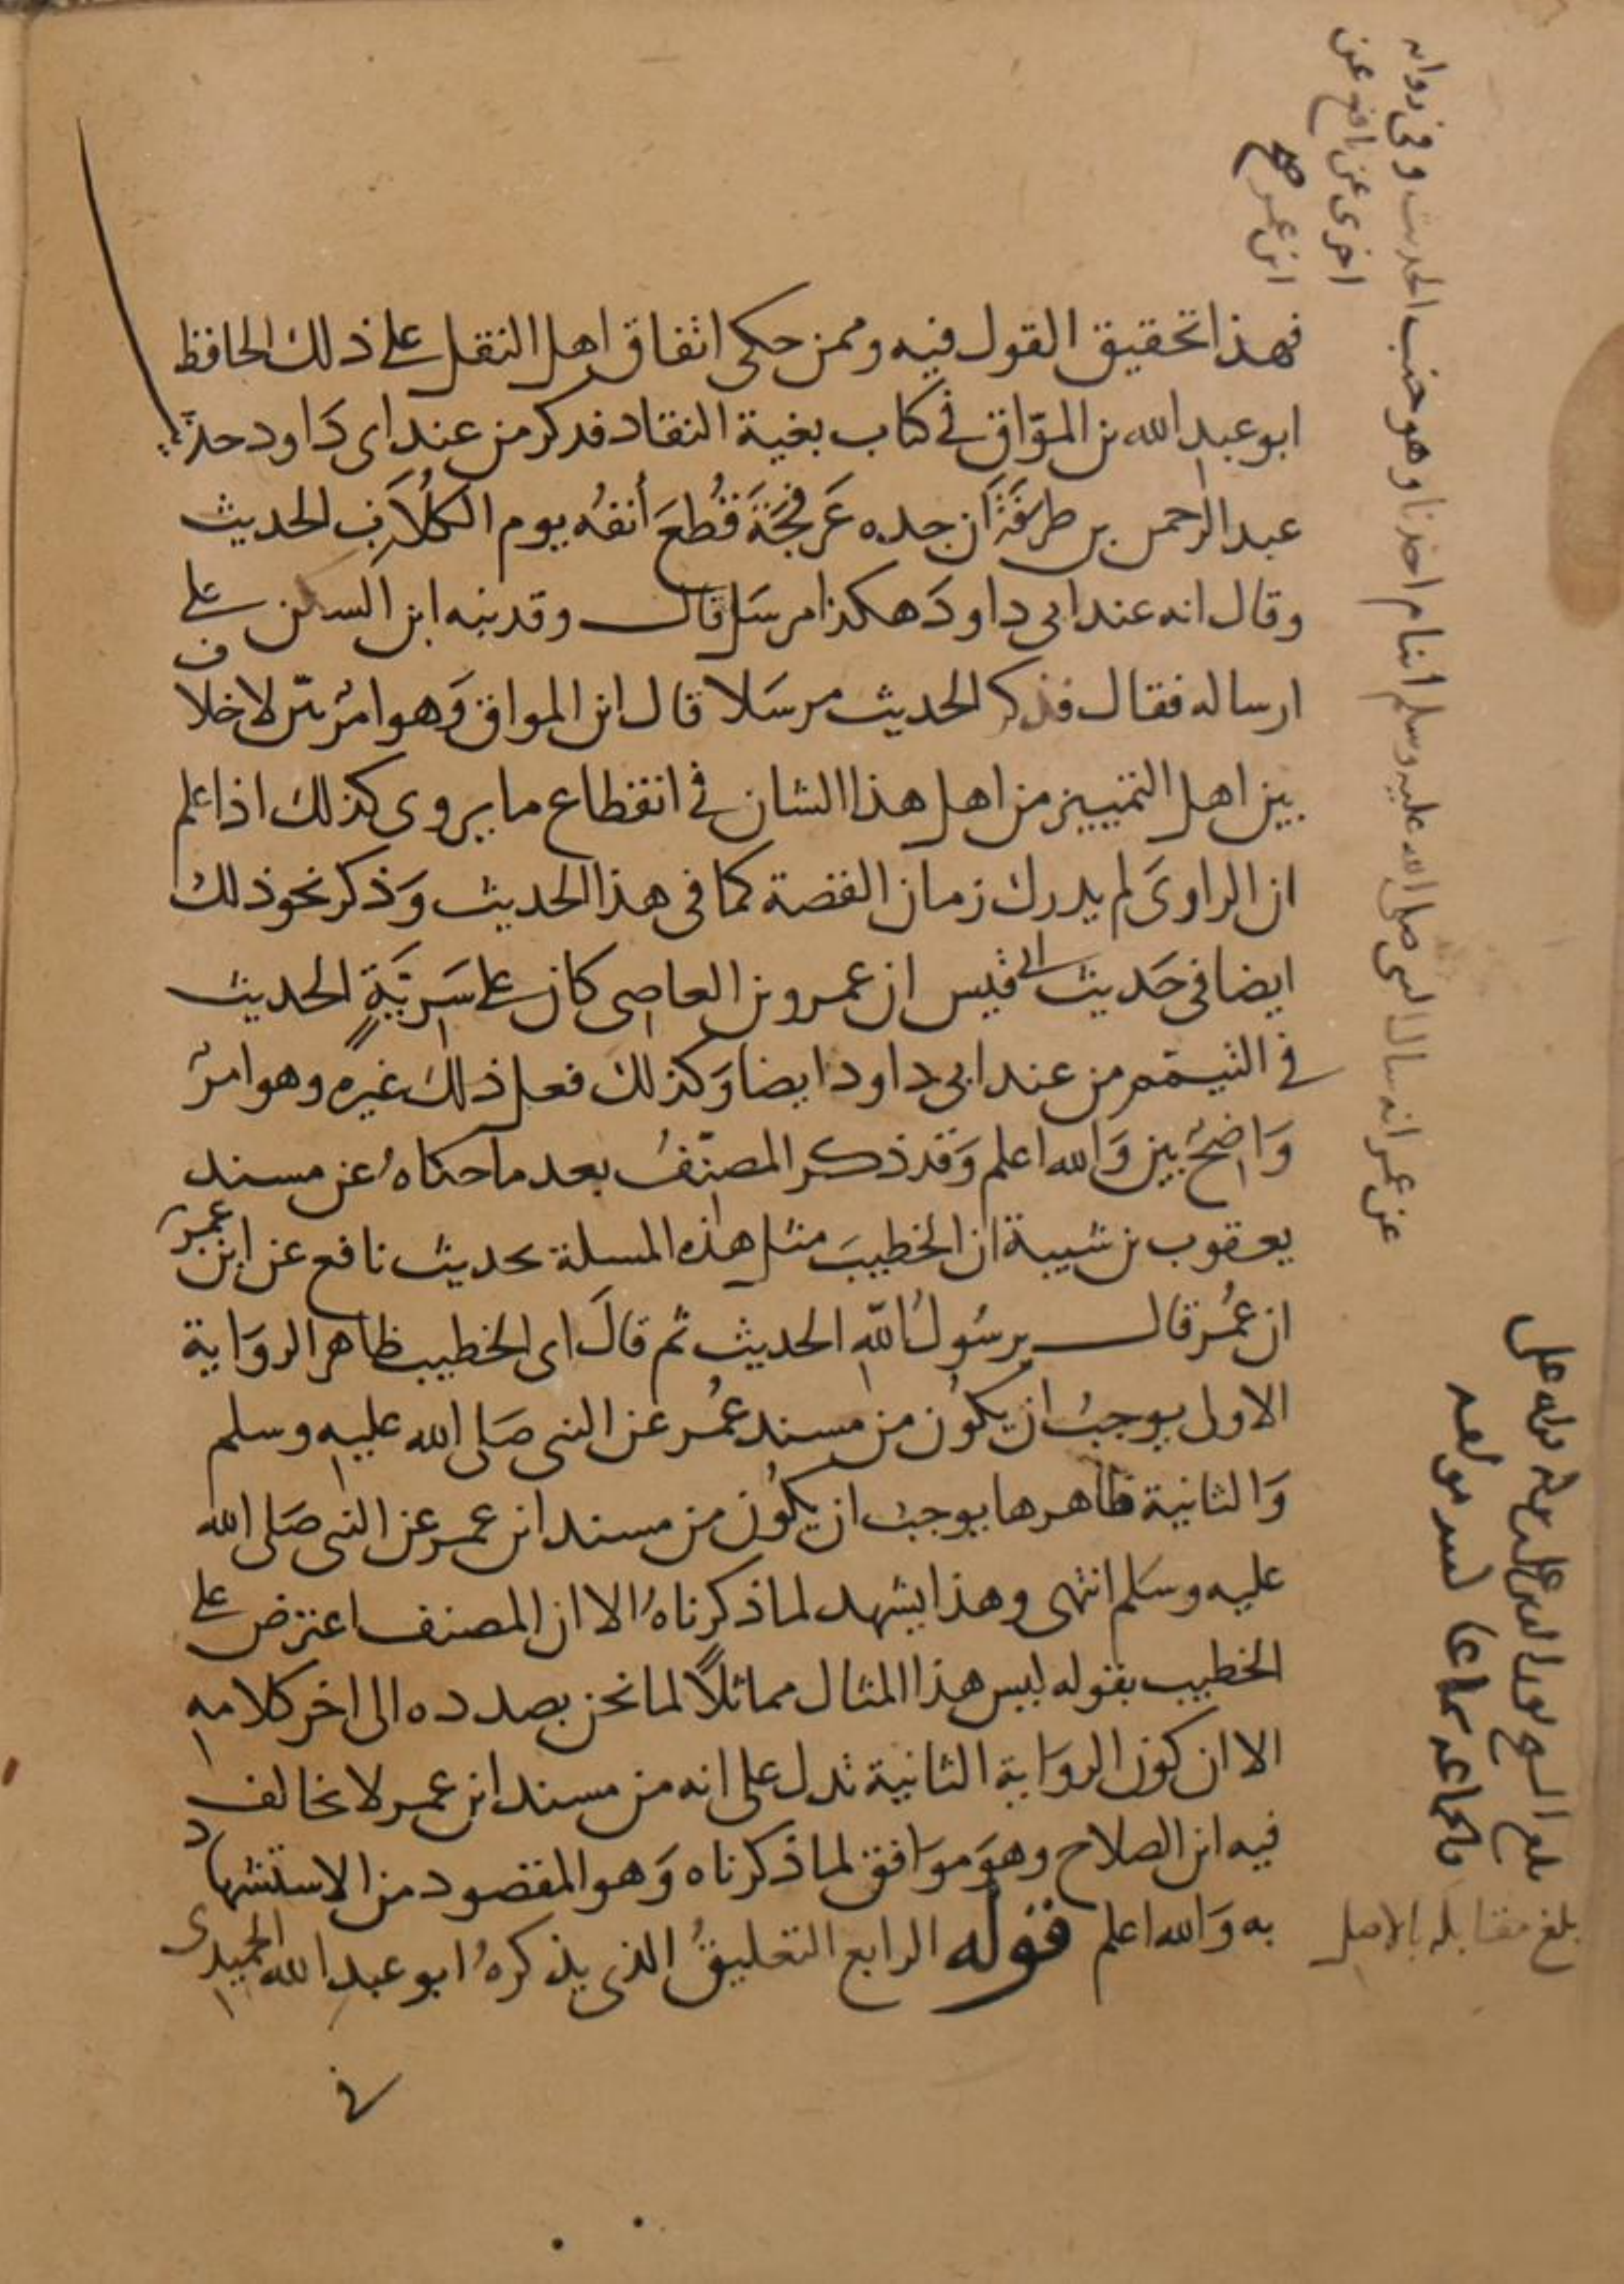 فهذا تحقيق القول فيه وممن حكى اتفاق اهل النقل على ذلك الحافظ
ابو عبد الله بن الموّاق في كتاب بغية النقاد فذكر من عند ابى دَاود حديث
عبد الرحمن بن طَرَفَةَ اَن جده عَرفجَةَ قُطعَ أنفُه يوم الكُلاَب الحديث
وقال انه عند ابى داود هكذا مرسَل قال وقد نبه ابن السكن على
ارساله فقال فذكر الحديث مرسَلا قال ابن المواق وَهو امرٌ بيّن لا خلاف
بين اهل التمييز من اهل هذا الشان في انقطاع ما يروى كذلك اذا علم
ان الراوىَ لم يدرك زمان القصة كما في هذا الحديث وَذكر نحو ذلك
ايضا في حَديث ابى قيس ان عمرو بن العاصى كان على سَريَّةٍ الحديث
في التيمّم من عند ابى داود ايضا وَكذلك فعل ذلك غيره وهو امرٌ
وَاضحٌ بين وَالله اعلم وَقد ذكر المصنّفُ بعد ما حكاهُ عن مسند
يعقوب بن شيبة ان الخطيبَ مثل هذه المسلة بحديث نافع عن ابن عمرَ
ان عمُر قال يرسُولَ اللهِ الحديث ثم قالَ اى الخطيب ظاهر الروَاية
الاولى يوجبُ ان يكوُن من مسند عمُر عن النبى صَلى الله عليه وسلم
وَالثانية ظاهرها يوجبُ ان يكوُن من مسند ابن عمر عن النبى صَلى الله
عليه وسَلم انتهى وهذا يشهد لما ذكرناهُ الا ان المصنف اعترض على
الخطيب بقوله ليس هذا المثال مماثلاً لما نحن بصدده الى اخر كلامهِ
الا ان كون الروَاية الثانية تدل على انه من مسند ابن عمر لا يخالف
فيه ابن الصلاح وهوَ موَافق لما ذكرناه وَهو المقصود من الاستشهاد
به وَالله اعلم قوله الرابع التعليقُ الذى يذكرهُ ابو عبد الله الحميدى
في
عن عمر انه سال النبى صلى الله عليه وسلم اينام احدنا وهو جنب الحديث وفى رواية
اخرى عن نافع عن
ابن عمر صح
بلغ مقابلة بالاصل